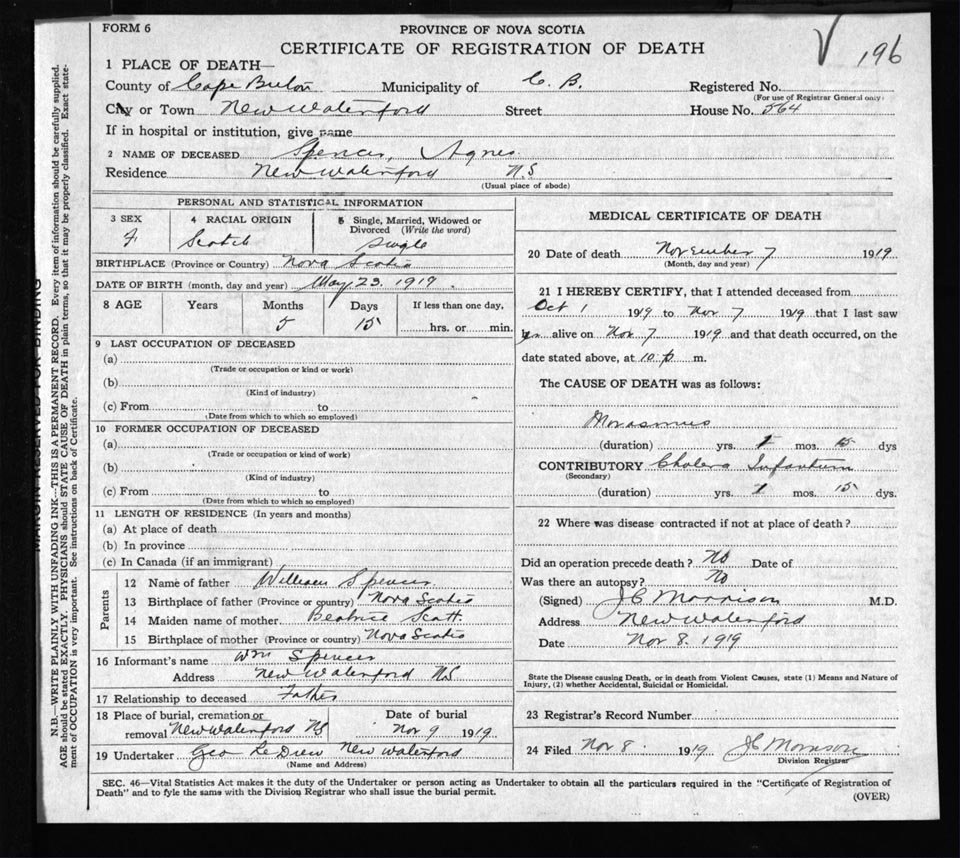 FORM 6
PROVINCE OF NOVA SCOTIA
CERTIFICATE OF REGISTRATION OF DEATH
196
1 PLACE OF DEATH—
County of Cape Breton Municipality of C. B. Registered No.
(For use of Registrar General only)
City or Town New Waterford Street House No. 564
If in hospital or institution, give name
2 NAME OF DECEASED Spencer, Agnes
Residence New Waterford N.S
(Usual place of abode)
PERSONAL AND STATISTICAL INFORMATION
3 SEX F
4 RACIAL ORIGIN Scotch
5 Single, Married, Widowed or Divorced (Write the word) Single
BIRTHPLACE (Province or Country) Nova Scotia
DATE OF BIRTH (month, day and year) May 23. 1919.
8 AGE Years Months Days If less than one day,
5 15 hrs. or min.
9 LAST OCCUPATION OF DECEASED
(a)
(Trade or occupation or kind or work)
(b)
(Kind of industry)
(c) From to
(Date from which to which so employed)
10 FORMER OCCUPATION OF DECEASED
(a)
(Trade or occupation or kind of work)
(b)
(Kind of industry)
(c) From to
(Date from which to which so employed)
11 LENGTH OF RESIDENCE (In years and months)
(a) At place of death
(b) In province
(c) In Canada (if an immigrant)
Parents
12 Name of father William Spencer
13 Birthplace of father (Province or country) Nova Scotia
14 Maiden name of mother Beatrice Scott.
15 Birthplace of mother (Province or country) Nova Scotia
16 Informant's name Wm Spencer
Address New Waterford NS
17 Relationship to deceased Father
18 Place of burial, cremation or removal New Waterford NS
Date of burial Nov 9 1919.
19 Undertaker Geo LeDrew New Waterford
(Name and Address)
MEDICAL CERTIFICATE OF DEATH
20 Date of death November 7 1919
(Month, day and year)
21 I HEREBY CERTIFY, that I attended deceased from
Oct 1 1919 to Nov 7 1919 that I last saw
alive on Nov 7 1919 and that death occurred, on the
date stated above, at 10 p m.
The CAUSE OF DEATH was as follows:
Marasmus
(duration) yrs. 1 mos. 15 dys
CONTRIBUTORY Cholera Infantum
(Secondary)
(duration) yrs. 1 mos. 15 dys.
22 Where was disease contracted if not at place of death?
Did an operation precede death? No Date of
Was there an autopsy? No
(Signed) J C Morrison M.D.
Address New Waterford
Date Nov 8. 1919
State the Disease causing Death, or in death from Violent Causes, state (1) Means and Nature of
Injury, (2) whether Accidental, Suicidal or Homicidal.
23 Registrar's Record Number
24 Filed Nov 8. 1919. J C Morrison
Division Registrar
SEC. 46—Vital Statistics Act makes it the duty of the Undertaker or person acting as Undertaker to obtain all the particulars required in the "Certificate of Registration of
Death" and to fyle the same with the Division Registrar who shall issue the burial permit.
(OVER)
MARGIN RESERVED FOR BINDING
N.B.—WRITE PLAINLY WITH UNFADING INK—THIS IS A PERMANENT RECORD. Every item of information should be carefully supplied.
AGE should be stated EXACTLY. PHYSICIANS should STATE CAUSE OF DEATH in plain terms, so that it may be properly classified. Exact state-
ment of OCCUPATION is very important. See instructions on back of Certificate.